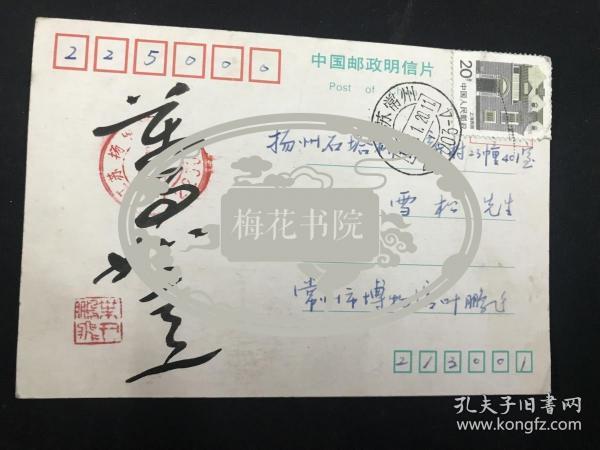 225000
中国邮政明信片
Post of
20分
中国人民邮政
苏常州
扬州石塔
村23幢401室
雪松 先生
梅花书院
万事如意
常州市博物馆叶鹏飞
213001
叶鹏飞
孔夫子旧书网
www.kongfz.com